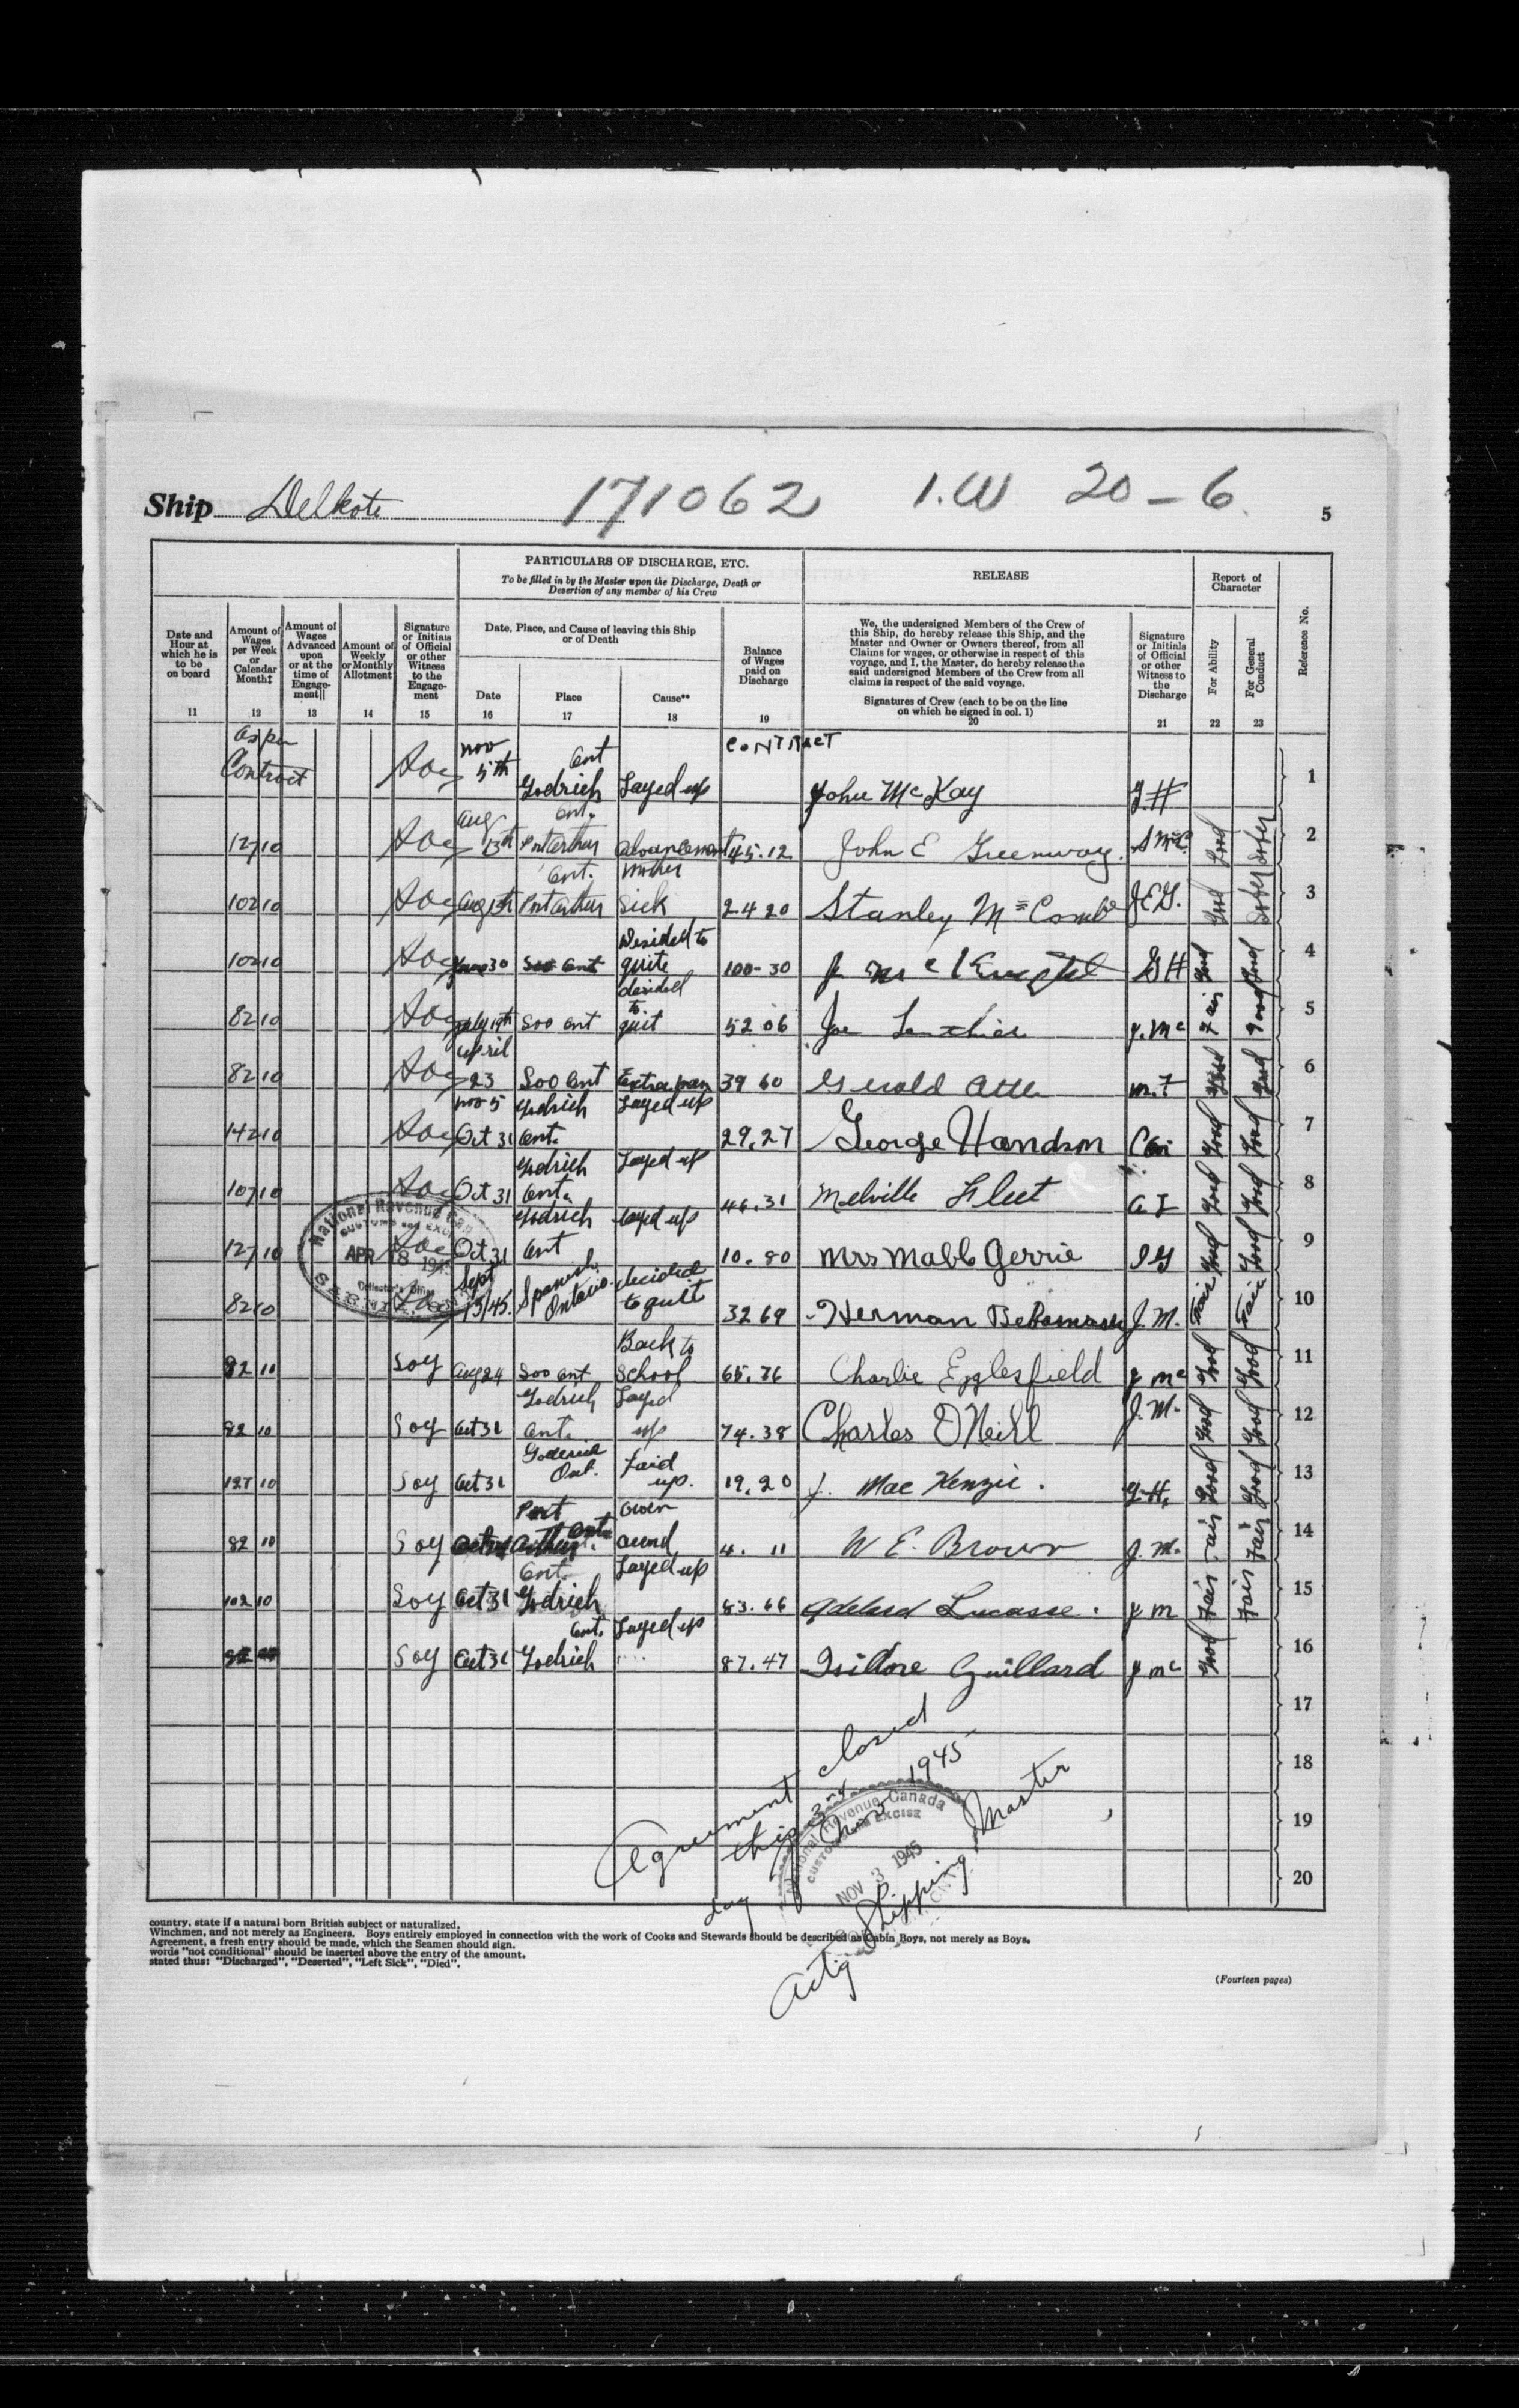 Ship Delkote 171062 1.W 20-6. 5
PARTICULARS OF DISCHARGE, ETC.
To be filled in by the Master upon the Discharge, Death or
Desertion of any member of his Crew
RELEASE
Report of
Character
Date and
Hour at
which he is
to be
on board
11
Amount of
Wages
per Week
or
Calendar
Month‡
12
Amount of
Wages
Advanced
upon
or at the
time of
Engage-
ment||
13
Amount of
Weekly
or Monthly
Allotment
14
Signature
or Initials
of Official
or other
Witness
to the
Engage-
ment
15
Date, Place, and Cause of leaving this Ship
or of Death
Date
16
Place
17
Cause**
18
Balance
of Wages
paid on
Discharge
19
We, the undersigned Members of the Crew of
this Ship, do hereby release this Ship, and the
Master and Owner or Owners thereof, from all
Claims for wages, or otherwise in respect of this
voyage, and I, the Master, do hereby release the
said undersigned Members of the Crew from all
claims in respect of the said voyage.
Signatures of Crew (each to be on the line
on which he signed in col. 1)
20
Signature
or Initials
of Official
or other
Witness to
the
Discharge
21
For Ability
22
For General
Conduct
23
Reference No.
as per Contract nov 5th Godrich ont Layed up CONTRACT John McKay G.H 1
127 10 aug 13th Port Arthur ont. advancement 45.12 John E Greenway. S McC. Good Sober 2
102 10 aug 13th Port Arthur Ont. Mother Sick 24 20 Stanley McComb J.E.G. Good Sober 3
102 10 30 Soo Ont Desided to quite 100-30 G H Good Good 4
82 10 July 19th Soo Ont desided to quit 52 06 Joe J. Mc Fair Good 5
82 10 april 23 Soo Ont Extra man 39 60 Gerald m.F Good Good 6
142 10 nov 5 Oct 31 Godrich Ont. Layed up 29.27 George Handson Good Good 7
107 10 Oct 31 Godrich Ont. Layed up 46.31 Melville Fleet Good Good 8
127 10 Oct 31 Godrich Ont Layed up 10.80 Mrs Mabb Gerrie Good Good 9
82 10 Sept 15/45. Spanish Ontario. decided to quit 32 69 Herman J.M. Fair Fair 10
82 10 Soy Aug 24 Soo Ont Back to School 65.76 Charlie Egglesfield J Mc Good Good 11
82 10 Soy Oct 31 Godrich Ont. Layed up 74.38 Charles O'Neill J.M. Good Good 12
127 10 Soy Oct 31 Goderich Ont. Laid up. 19.20 J. MacKenzie. G.H. Good Good 13
82 10 Soy Port Arthur Ont. Own acord 4. 11 W E. Brown J.M. Fair Fair 14
102 10 Soy Oct 31 Godrich Ont. Layed up 83.66 Adelard Lucasse. J M Fair Fair 15
Soy Oct 31 Godrich Ont. Layed up 87.47 Isidore Guillard J Mc Good 16
17
18
19
20
National Revenue Can
CUSTOMS and EXCISE
APR 18 1945
Collector's Office
Agreement closed
this 3rd
day Nov 1945
Actg Shipping Master
National Revenue Canada
CUSTOMS and EXCISE
NOV 3 1945
country, state if a natural born British subject or naturalized.
Winchmen, and not merely as Engineers. Boys entirely employed in connection with the work of Cooks and Stewards should be described as Cabin Boys, not merely as Boys.
Agreement, a fresh entry should be made, which the Seamen should sign.
words "not conditional" should be inserted above the entry of the amount.
stated thus: "Discharged", "Deserted", "Left Sick", "Died".
(Fourteen pages)